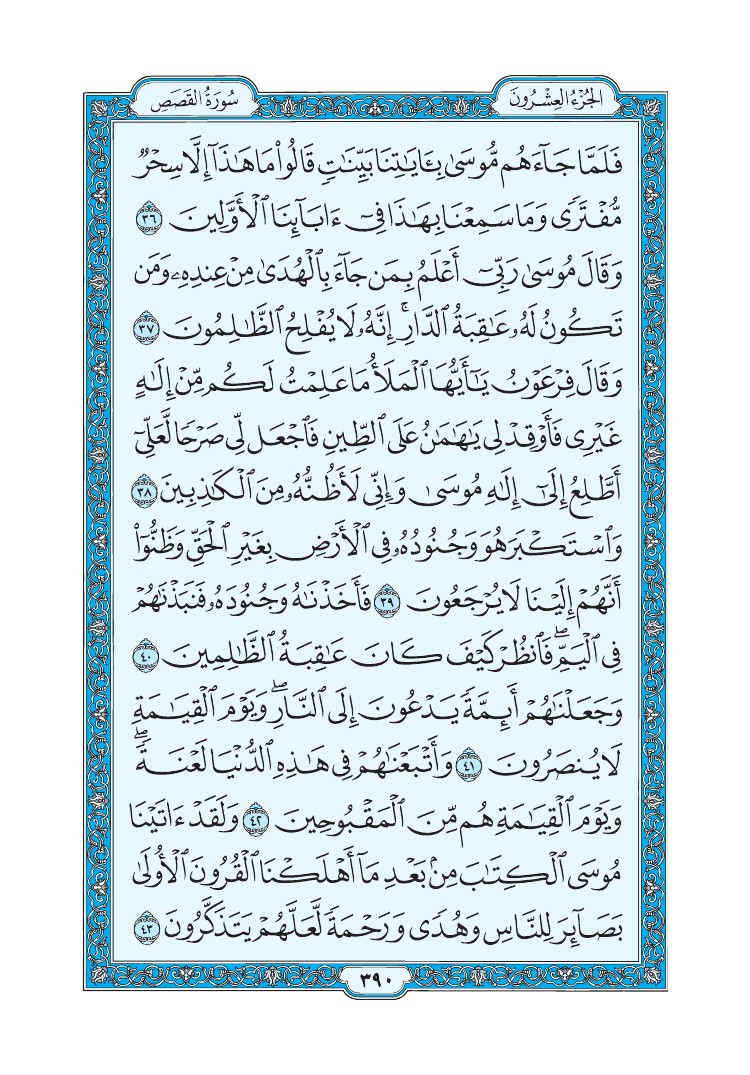 سُورَةُ القَصَصِ
الجُزْءُ العِشْرُونَ
فَلَمَّا جَآءَهُم مُّوسَىٰ بِـَٔايَٰتِنَا بَيِّنَٰتٖ قَالُواْ مَا هَٰذَآ إِلَّا سِحۡرٞ
مُّفۡتَرٗى وَمَا سَمِعۡنَا بِهَٰذَا فِيٓ ءَابَآئِنَا ٱلۡأَوَّلِينَ ٣٦
وَقَالَ مُوسَىٰ رَبِّيٓ أَعۡلَمُ بِمَن جَآءَ بِٱلۡهُدَىٰ مِنۡ عِندِهِۦ وَمَن
تَكُونُ لَهُۥ عَٰقِبَةُ ٱلدَّارِۚ إِنَّهُۥ لَا يُفۡلِحُ ٱلظَّٰلِمُونَ ٣٧
وَقَالَ فِرۡعَوۡنُ يَٰٓأَيُّهَا ٱلۡمَلَأُ مَا عَلِمۡتُ لَكُم مِّنۡ إِلَٰهٍ
غَيۡرِي فَأَوۡقِدۡ لِي يَٰهَٰمَٰنُ عَلَى ٱلطِّينِ فَٱجۡعَل لِّي صَرۡحٗا لَّعَلِّيٓ
أَطَّلِعُ إِلَىٰٓ إِلَٰهِ مُوسَىٰ وَإِنِّي لَأَظُنُّهُۥ مِنَ ٱلۡكَٰذِبِينَ ٣٨
وَٱسۡتَكۡبَرَ هُوَ وَجُنُودُهُۥ فِي ٱلۡأَرۡضِ بِغَيۡرِ ٱلۡحَقِّ وَظَنُّوٓاْ
أَنَّهُمۡ إِلَيۡنَا لَا يُرۡجَعُونَ ٣٩ فَأَخَذۡنَٰهُ وَجُنُودَهُۥ فَنَبَذۡنَٰهُمۡ
فِي ٱلۡيَمِّۖ فَٱنظُرۡ كَيۡفَ كَانَ عَٰقِبَةُ ٱلظَّٰلِمِينَ ٤٠
وَجَعَلۡنَٰهُمۡ أَئِمَّةٗ يَدۡعُونَ إِلَى ٱلنَّارِۖ وَيَوۡمَ ٱلۡقِيَٰمَةِ
لَا يُنصَرُونَ ٤١ وَأَتۡبَعۡنَٰهُمۡ فِي هَٰذِهِ ٱلدُّنۡيَا لَعۡنَةٗۖ
وَيَوۡمَ ٱلۡقِيَٰمَةِ هُم مِّنَ ٱلۡمَقۡبُوحِينَ ٤٢ وَلَقَدۡ ءَاتَيۡنَا
مُوسَى ٱلۡكِتَٰبَ مِنۢ بَعۡدِ مَآ أَهۡلَكۡنَا ٱلۡقُرُونَ ٱلۡأُولَىٰ
بَصَآئِرَ لِلنَّاسِ وَهُدٗى وَرَحۡمَةٗ لَّعَلَّهُمۡ يَتَذَكَّرُونَ ٤٣
٣٩٠